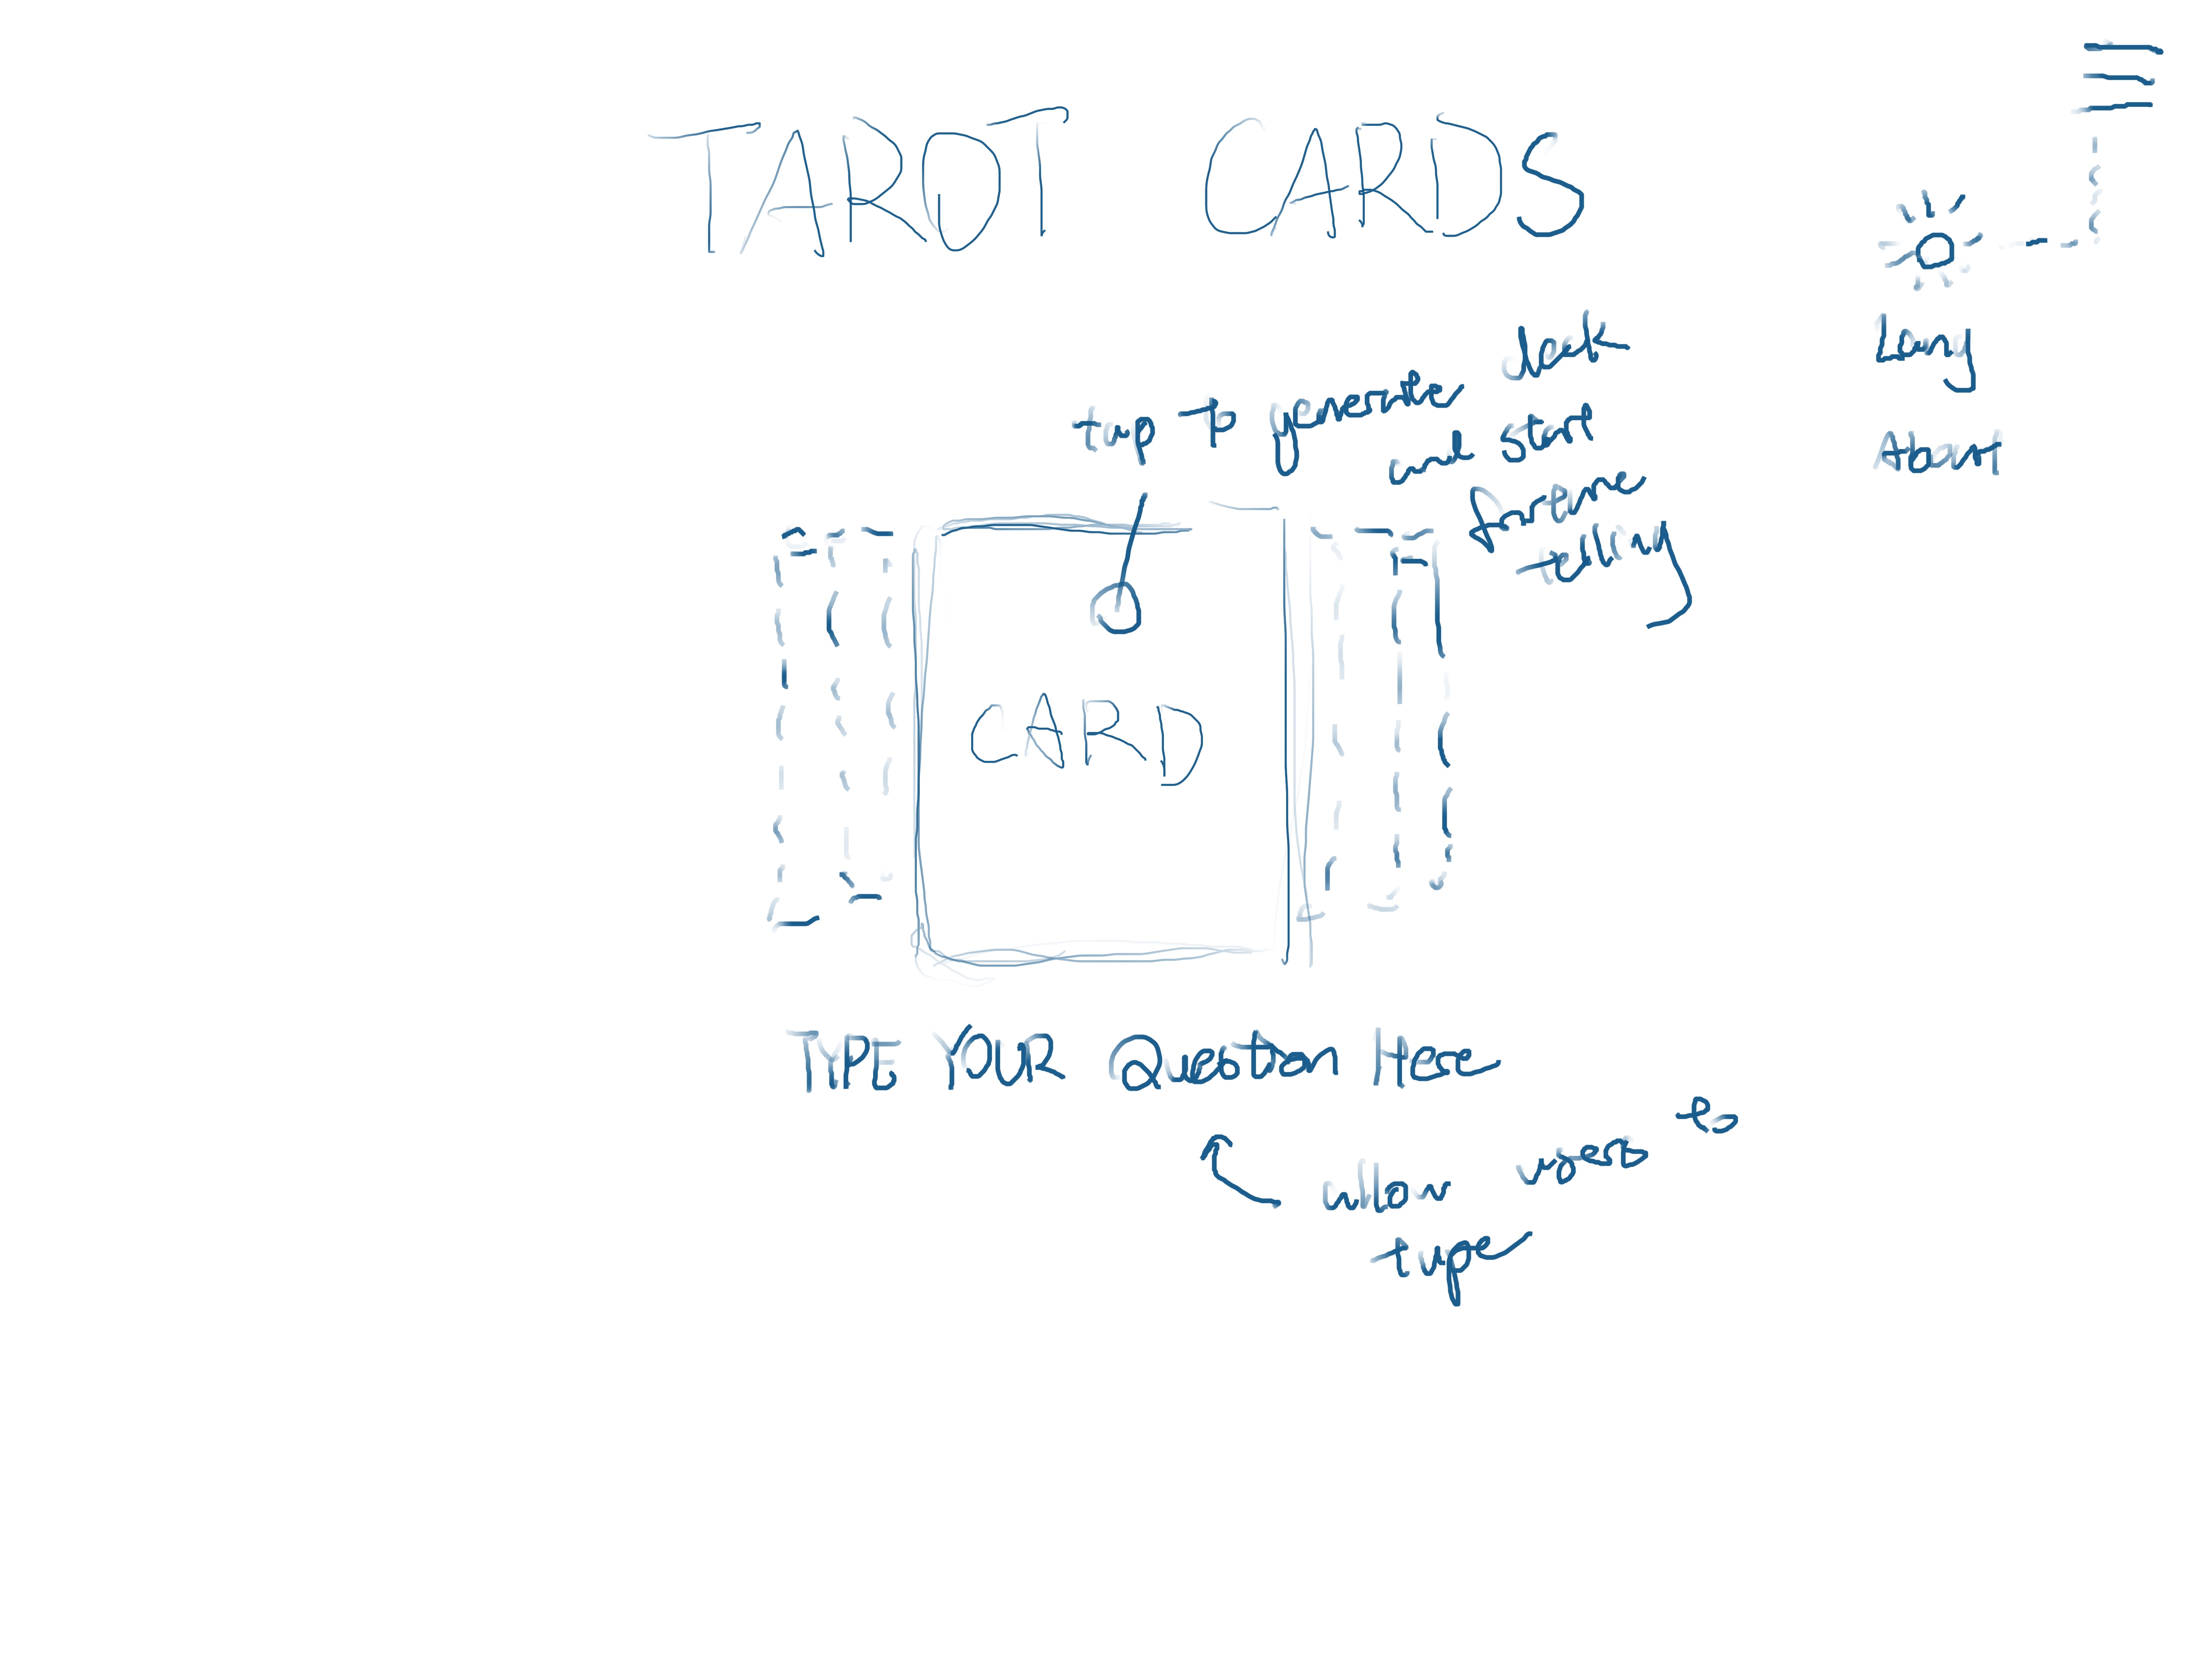 TAROT CARDS
Lang
About
tap to generate deck
and start
fortune
telling
CARD
TYPE YOUR Question Here
allow users to
type